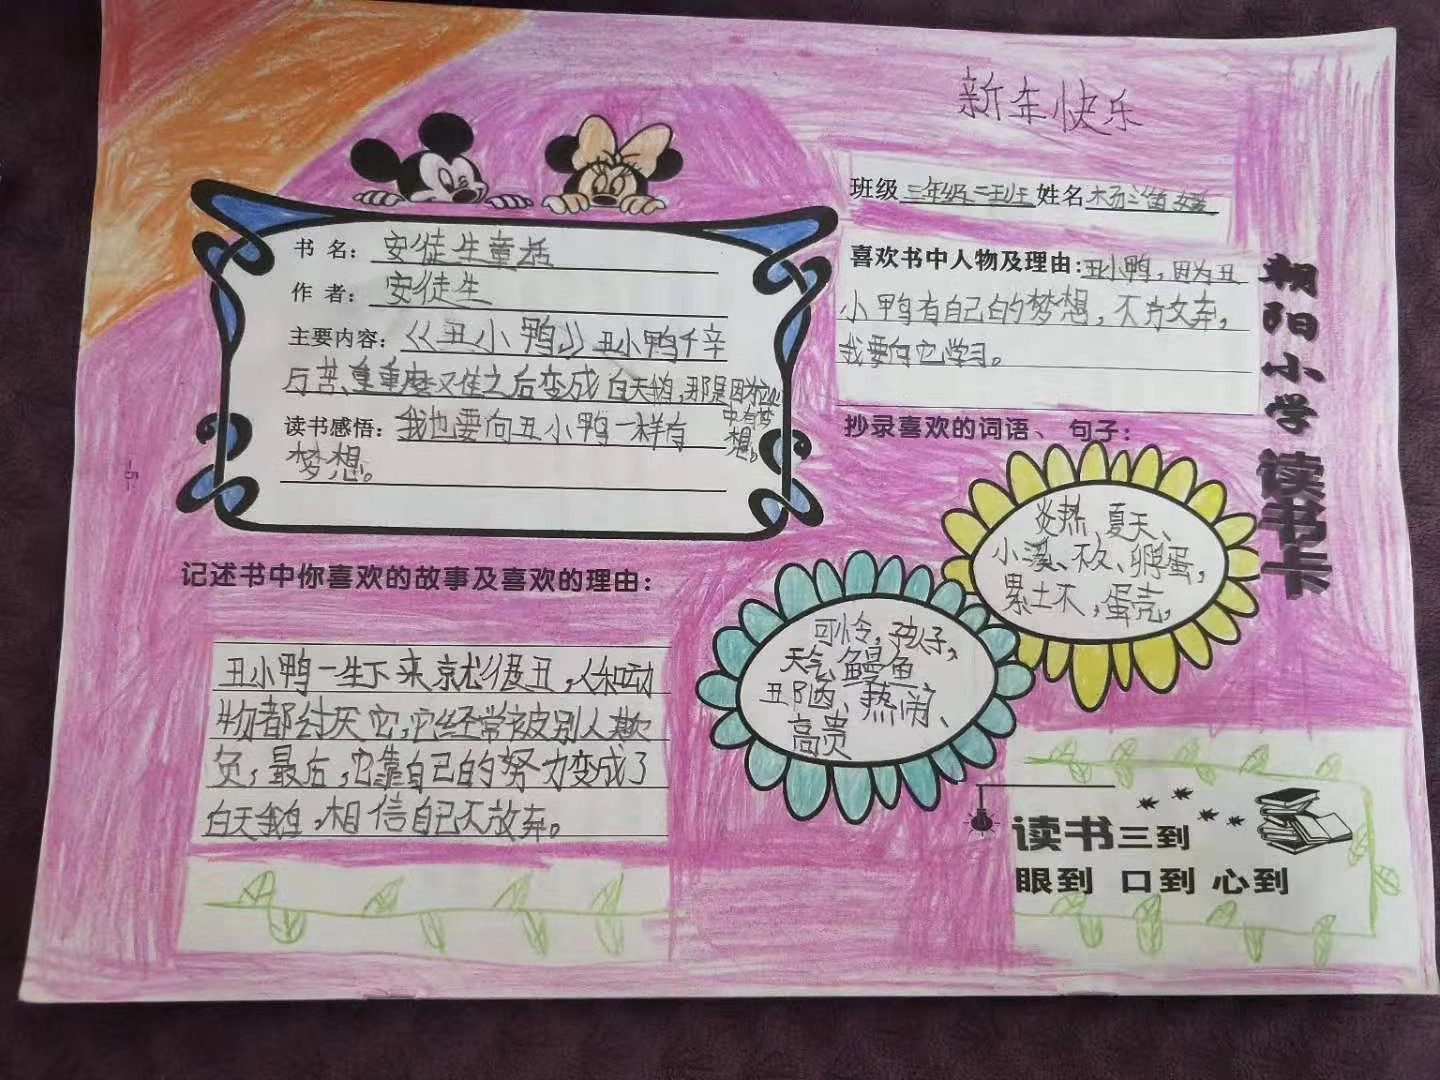 新年快乐
班级 三年级二班 姓名 杨
书 名：安徒生童话
作 者：安徒生
主要内容：《丑小鸭》丑小鸭千辛
万苦、重重磨又住之后变成白天鹅，那是因为心
中有梦
想。
读书感悟：我也要向丑小鸭一样有
梦想。
喜欢书中人物及理由：丑小鸭，因为丑
小鸭有自己的梦想，不放弃，
我要向它学习。
抄录喜欢的词语、 句子：
炎热 夏天、
小溪、衣、孵蛋，
累土木，蛋壳，
可怜，孩子，
天气、鳗鱼
丑陋、热闹、
高贵
记述书中你喜欢的故事及喜欢的理由：
丑小鸭一生下来就很丑，人和动
物都讨厌它，它经常被别人欺
负，最后，它靠自己的努力变成了
白天鹅。相信自己不放弃。
读书三到
眼到 口到 心到
朝阳小学 读书卡
-5-